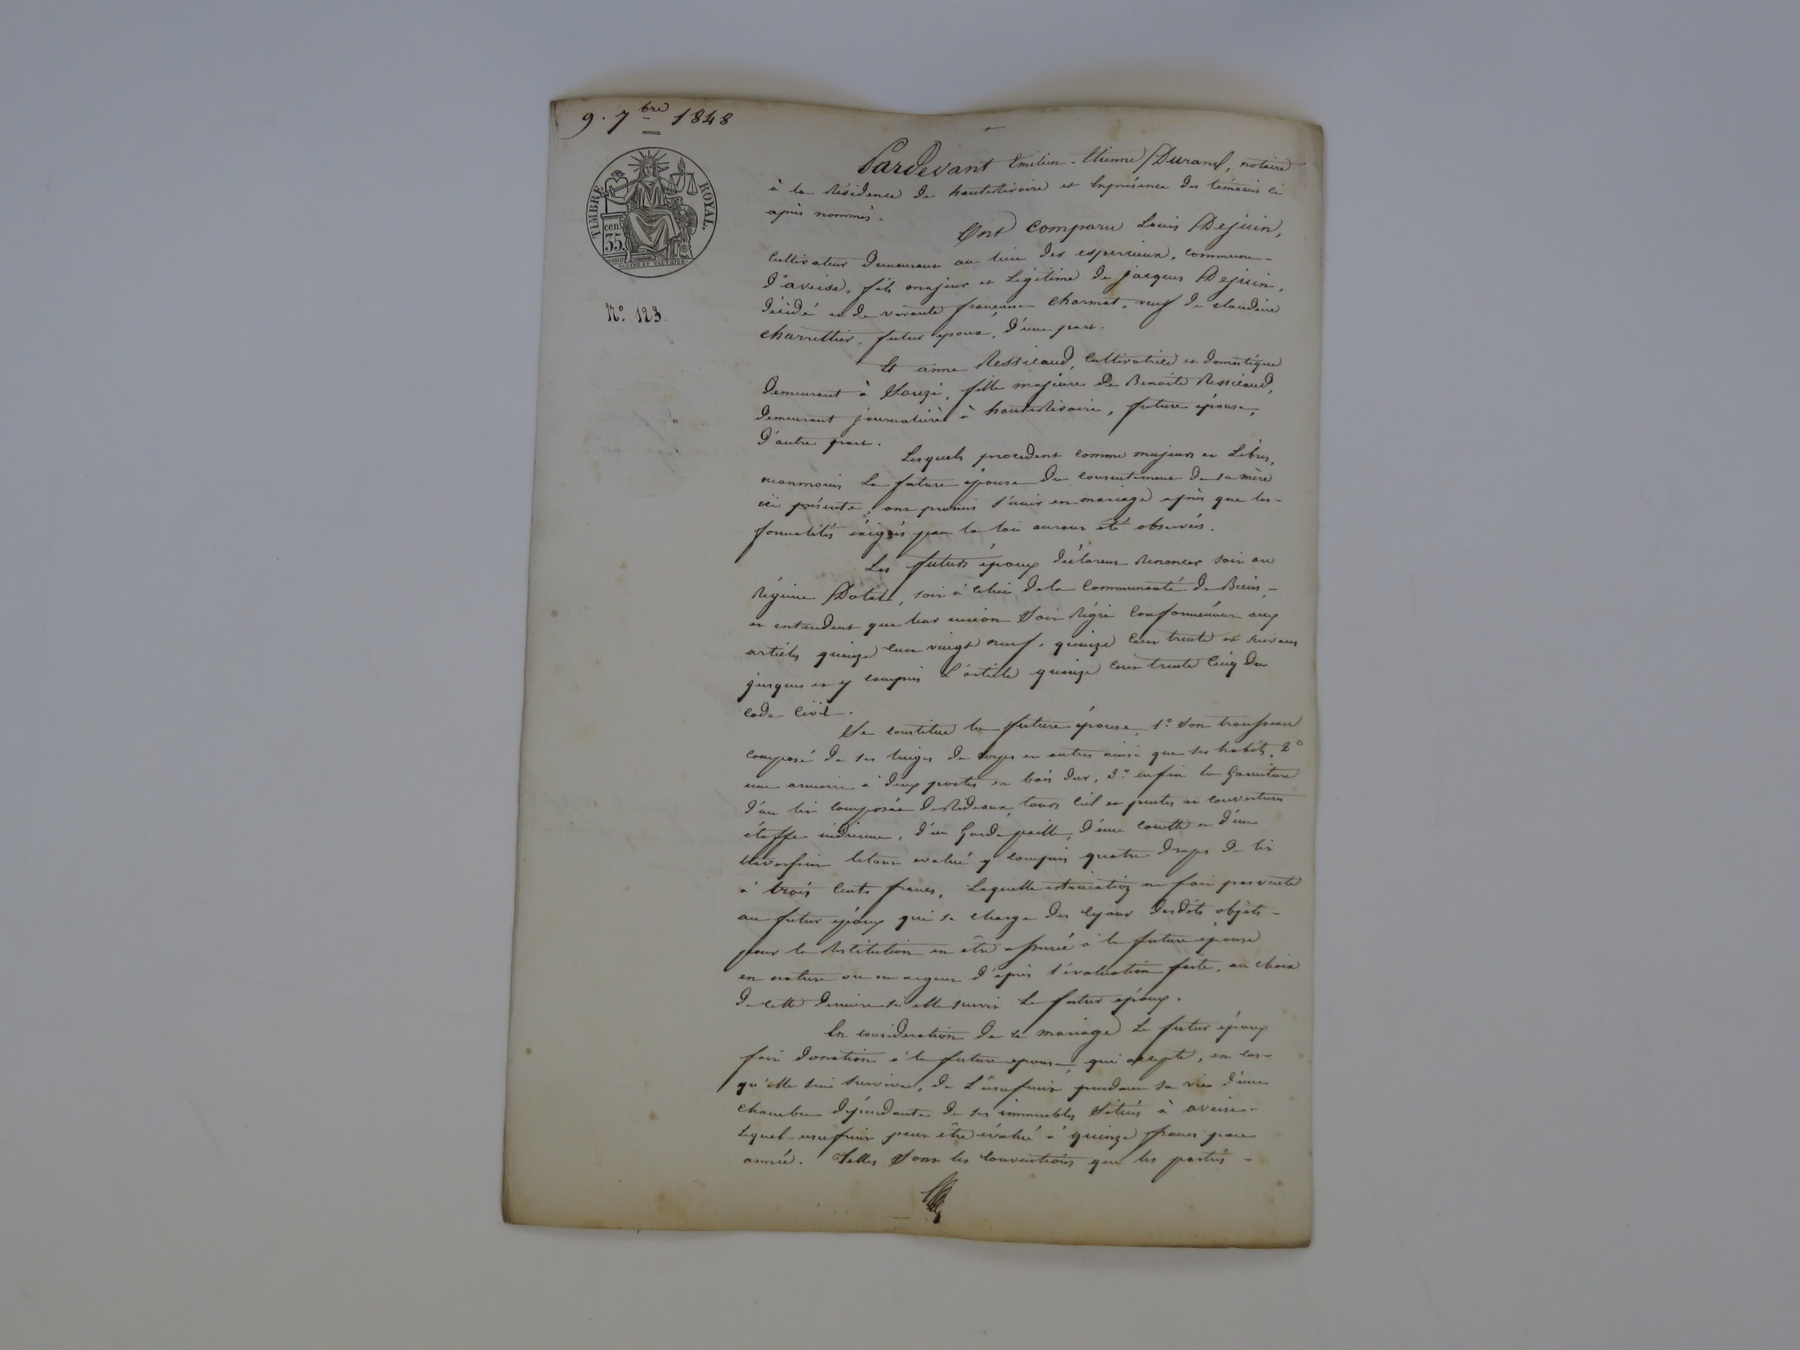 9. 7bre 1848
TIMBRE ROYAL.
cen. 35
N.º 123.
Pardevant Emilien-Etienne Durand, notaire
à la Résidence de hauterivoire et Enprésence des témoins ci
après nommés.
Ont comparu Louis Dejuin,
Cultivateur Demeurant au lieu des esperieux, commune-
D'aveise, fils majeur et Légitime de Jacques Dejuin,
Décédé et de vivante françoise charmat, veuf de claudine
charvillier, futur époux, D'une part.
Et anne Ressicaud, Cultivatrice et domestique
Demeurant à Souzi, fille majeure De Benoite Ressicaud,
Demeurant journalière à hauterivoire, future épouse,
D'autre part.
Lesquels procédent comme majeurs et Libres,
neanmoins La future épouse Du consentement de sa mère
ici présente, ont promis S'unir en mariage après que les-
formalités éxigés par la loi auront été observés.
Les futurs époux déclarent Renoncer soit au
Régime Dotal, soit à Celui de la Communauté de Biens,-
et entendent que leur union Soit Régie Conformément aux
articles quinze Cent vingt neuf, quinze Cent trente et suivans
jusques et y compris L'article quinze Cent trente Cinq Du
code Civil.
Se constitue la future épouse, 1.º Son trousseau
composé de ses linges de corps et autres ainsi que ses habits, 2º
une armoire à deux portes en bois dur, 3.º enfin la Garniture
d'un lit composée de Rideaux, tours Ciel et pentes et couverture
étoffe indienne, d'un Garde paille, d'une couette et d'un
traversin letout evalué y compris quatre draps de lit
à trois Cents francs, Laquelle estimation ne fait pas vente
au futur époux qui se charge des objets-
pour la Restitution en être assurée à la future épouse
en nature ou en argent d'après l'évaluation faite, au choix
de cette dernière si elle survit Le futur époux.
En considération de ce mariage Le futur époux
fait donation à la future epouse, qui accepte, en cas-
qu'elle lui survive, de L'usufruit pendant sa vie d'une
Chambre dépendante de ses immeubles Situés à aveise.-
Lequel usufruit peut être évalué à quinze francs par
année. Telles Sont les Conventions que les parties -